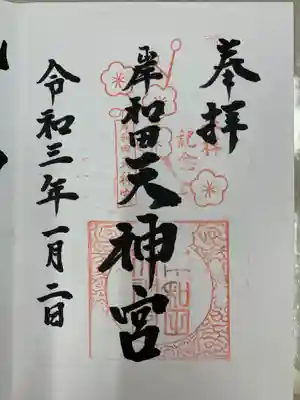 奉拝
岸和田天神宮
令和三年一月二日
記念